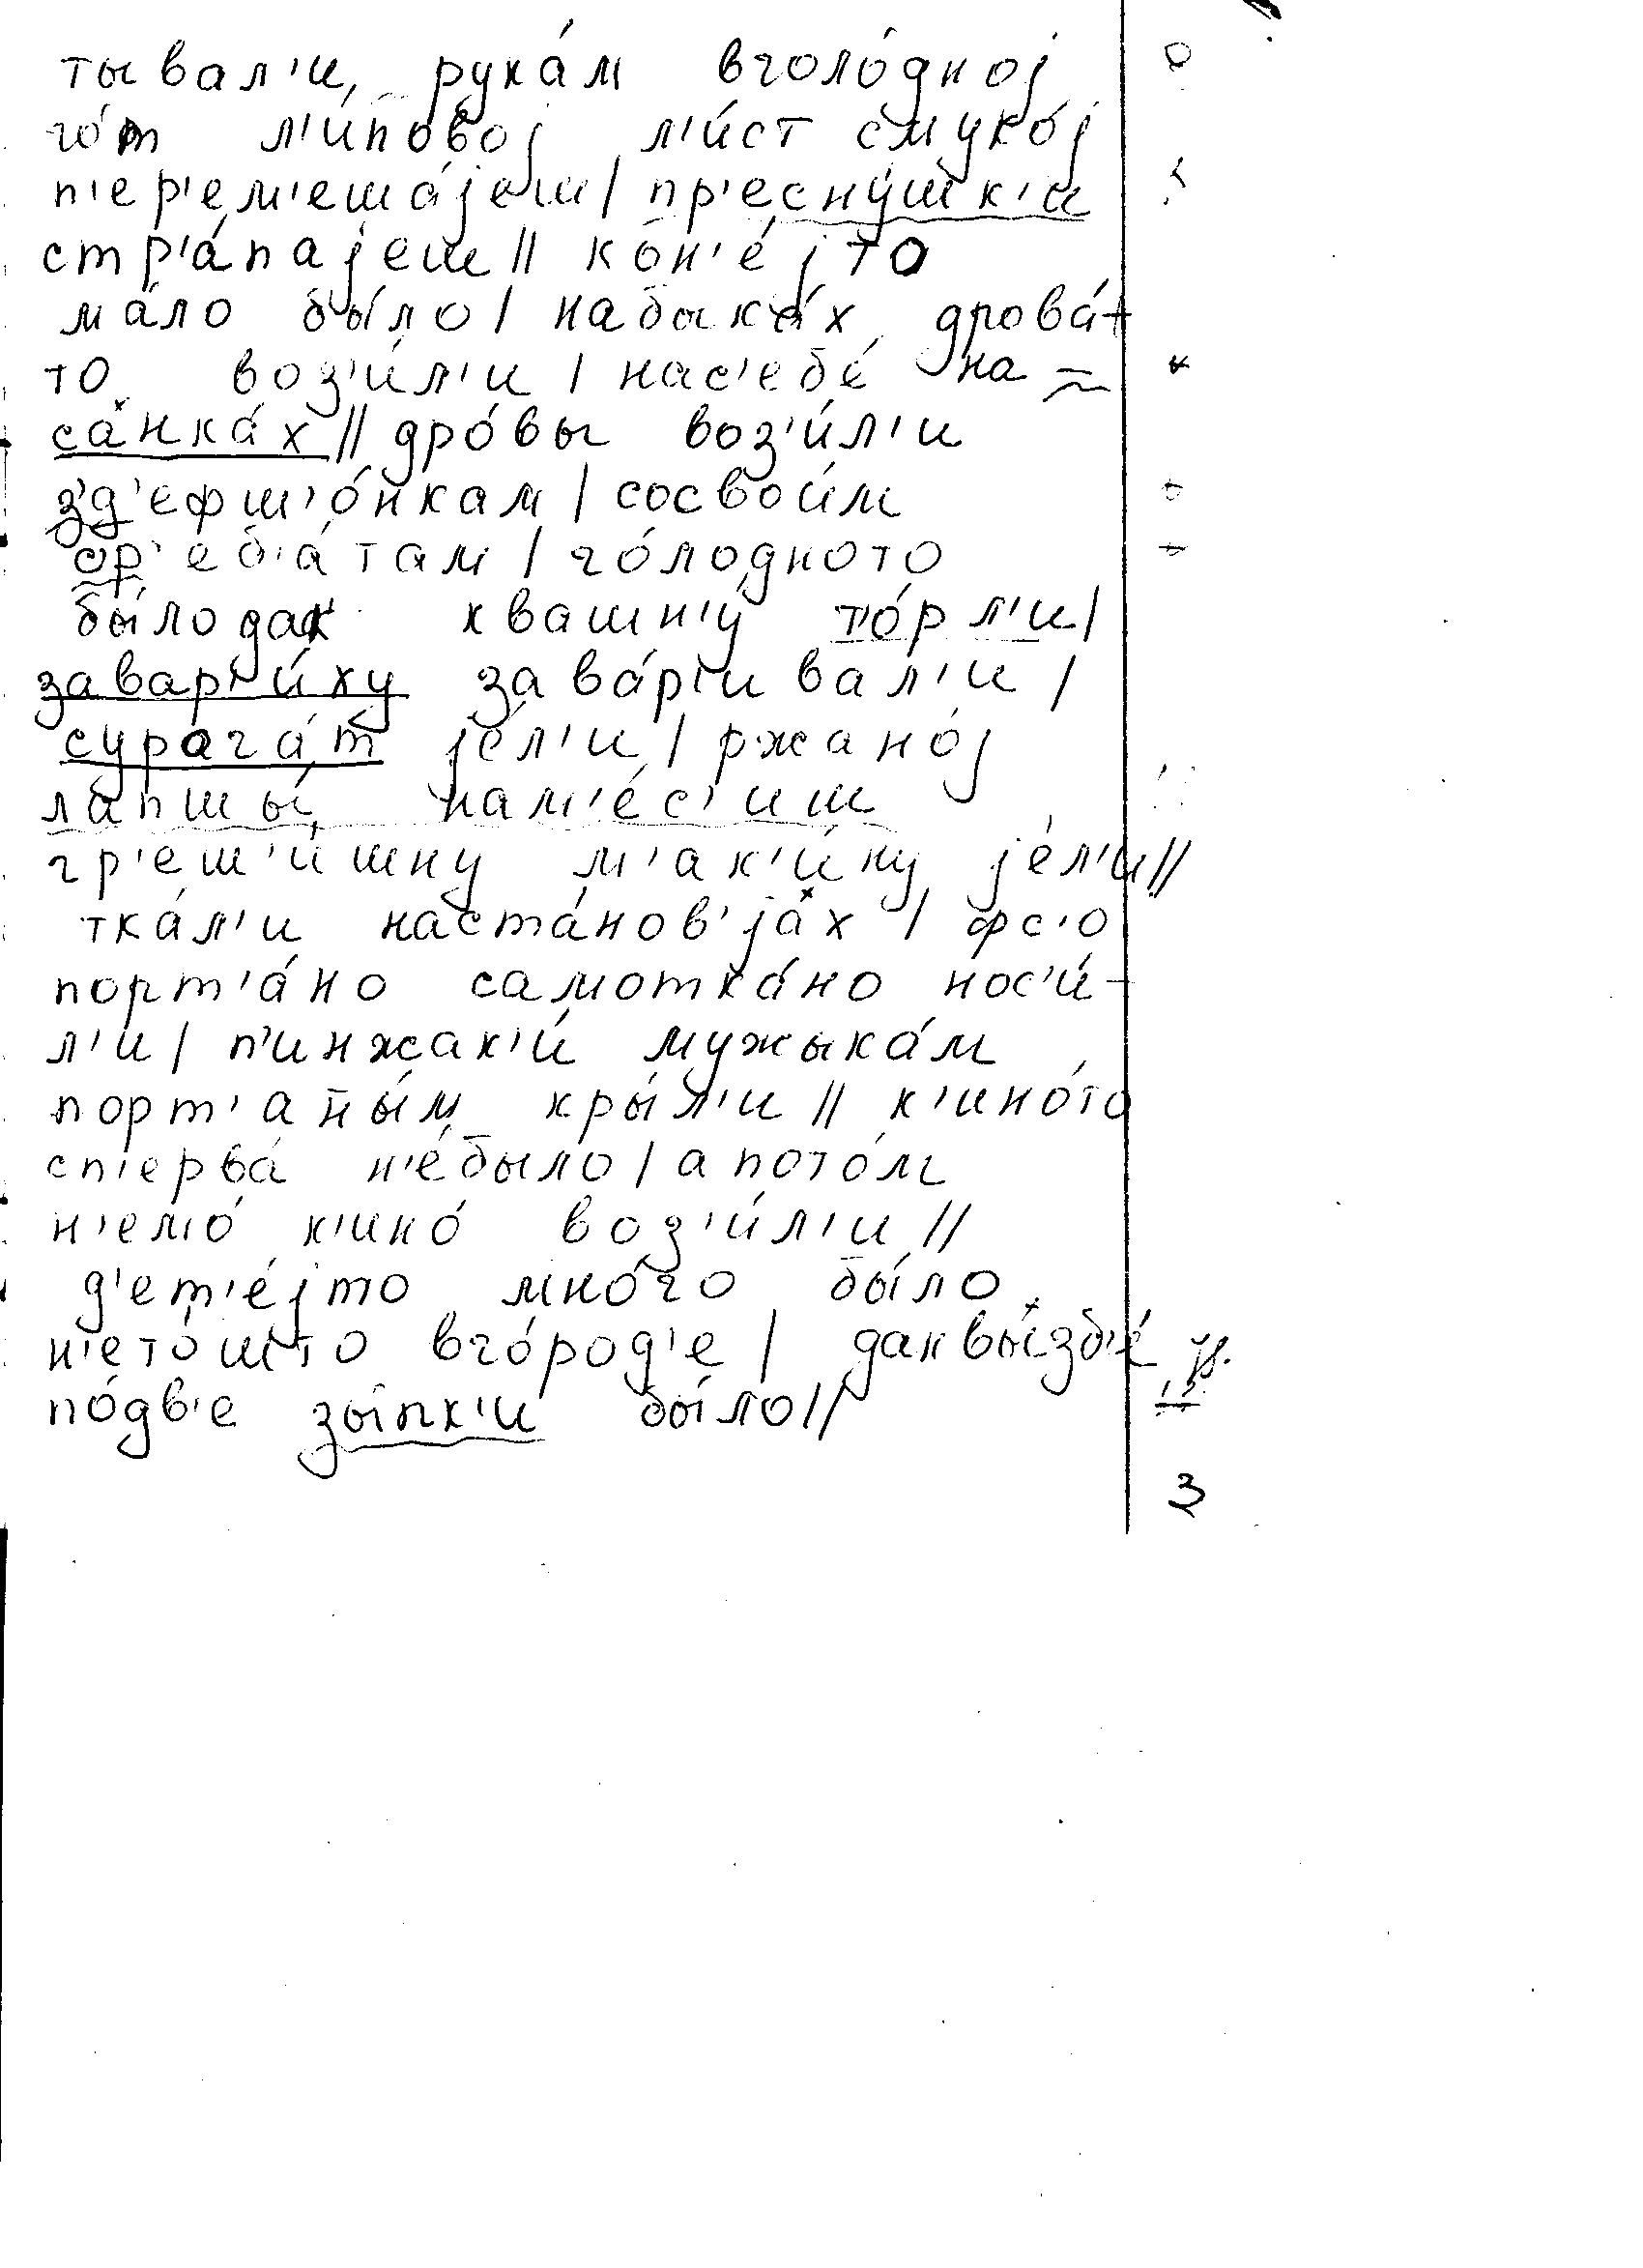 тывал'и, рука́м вголо́дној
го́т л'и́повој л'и́ст смуко́ј
п'ер'ем'еша́јеш/ пр'есну́шк'и
стр'а́пајеш// кон'е́јто
ма́ло бы́ло/ набыка́х дрова́-
то воз'и́л'и/ нас'ебе́ на
са́нка́х// дро́вы воз'и́л'и
з'д'ефш'о́нкам/ сосвои́м
ор'еб'а́там/ го́лодното
бы́лодак квашн'у́ т'о́рл'и/
завар'и́ху зава́р'ивал'и/
сурага́т је́л'и/ ржано́ј
лапшы́ нам'е́с'иш
гр'еш'и́шну м'ак'и́ну је́л'и//
тка́л'и наста́нов'ја́х/ фс'о
порт'а́но самотка́но нос'и́-
л'и/ п'инжак'и́ мужыка́м
порт'аны́м кры́л'и// к'ино́то
сп'ерва́ н'е́было/ апото́м
н'емо́ к'ино́ воз'и́л'и//
д'ет'е́јто мно́го бы́ло
н'ето́што вго́род'е/ даквы́зб'е́
по́дв'е зы́пк'и бы́ло//
3